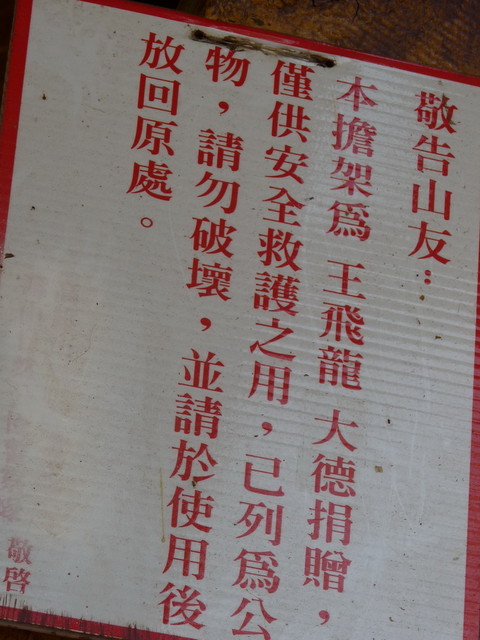 敬告山友：
本擔架為 王飛龍 大德捐贈，
僅供安全救護之用，已列為公
物，請勿破壞，並請於使用後
放回原處。
敬啓